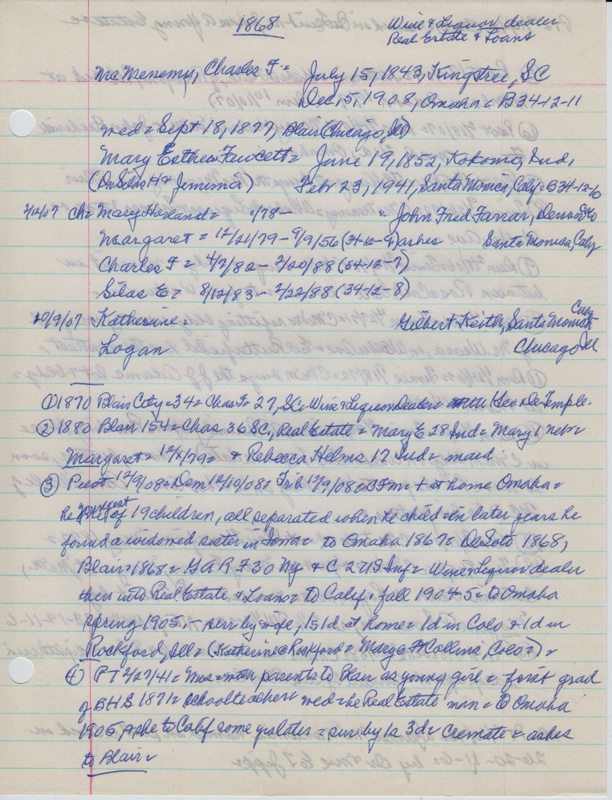 1868
Wine & Liquor dealer
Real Estate & Loans
McMenemy, Charles F = July 15, 1843, Kingstree, SC
Dec 15, 1908, Omaha = B34-12-11
med = Sept 18, 1877, Blair (Chicago, Ill)
Mary Esther Fawcett = June 19, 1852, Kokomo, Ind,
(Dr Silas H & Jemima) Feb 23, 1941, Santa Monica, Calif = B34-12-10
2/12/07 Ch = Mary Harland = /78 - = John Fred Farrar, Denver, Colo
Margaret = 12/21/79 - 9/9/56 (34-12-9) ashes Santa Monica, Calif
Charles F = 4/2/82 - 2/20/88 (34-12-7)
Silas E = 8/12/83 - 2/22/88 (34-12-8)
10/9/07 Katherine = Gilbert Keith, Santa Monica, Calif
Logan Chicago, Ill
① 1870 Blair City = 34 = Chas F = 27, SC = Wine & Liquor Dealer = Geo De Temple.
② 1880 Blair 154 = Chas 36 SC, Real Estate = Mary E 28 Ind = Mary 1 Neb =
Margaret = 12/1/79 = & Rebecca Helms 17 Ind = maid
③ Pilot 12/9/08 = Dem 12/10/08 = Trib 12/9/08 = at home Omaha =
he youngest of 19 children, all separated when he child = in later years he
found a widowed sister in Iowa = to Omaha 1867 = DeSoto 1868,
Blair = 1868 = GAR F 30 Ny & C 2 US Inf = Wine & Liquor dealer
then into Real Estate & Loans = to Calif = fall 1904-5 = to Omaha
spring 1905, - surv by wife, 1s 1d at home = 1d in Colo & 1d in
Rockford, Ill = (Katherine Rockford = Mary Collins, Colo) =
④ PT 2/27/41 = parents to Blair as young girl = first grad
of BHS 1871 = school teacher = med = he Real Estate man = to Omaha
1905 = to Calif some yrs later = surv by 1s 3d = Cremate = ashes
to Blair =